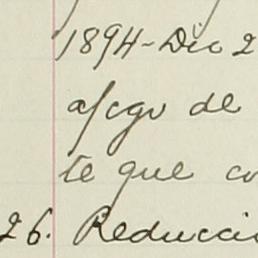 1894-Dic 2
a/cgo de
te que co
26. Reducció